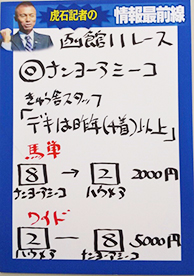 虎石記者の
情報最前線
函館11レース
◎ナンヨーアミーコ
きゅう舎スタッフ
「デキは昨年(1着)以上」
馬単
8 → 2 2000円
ナンヨーアミーコ ハウメア
ワイド
2 ― 8 5000円
ハウメア ナンヨーアミーコ